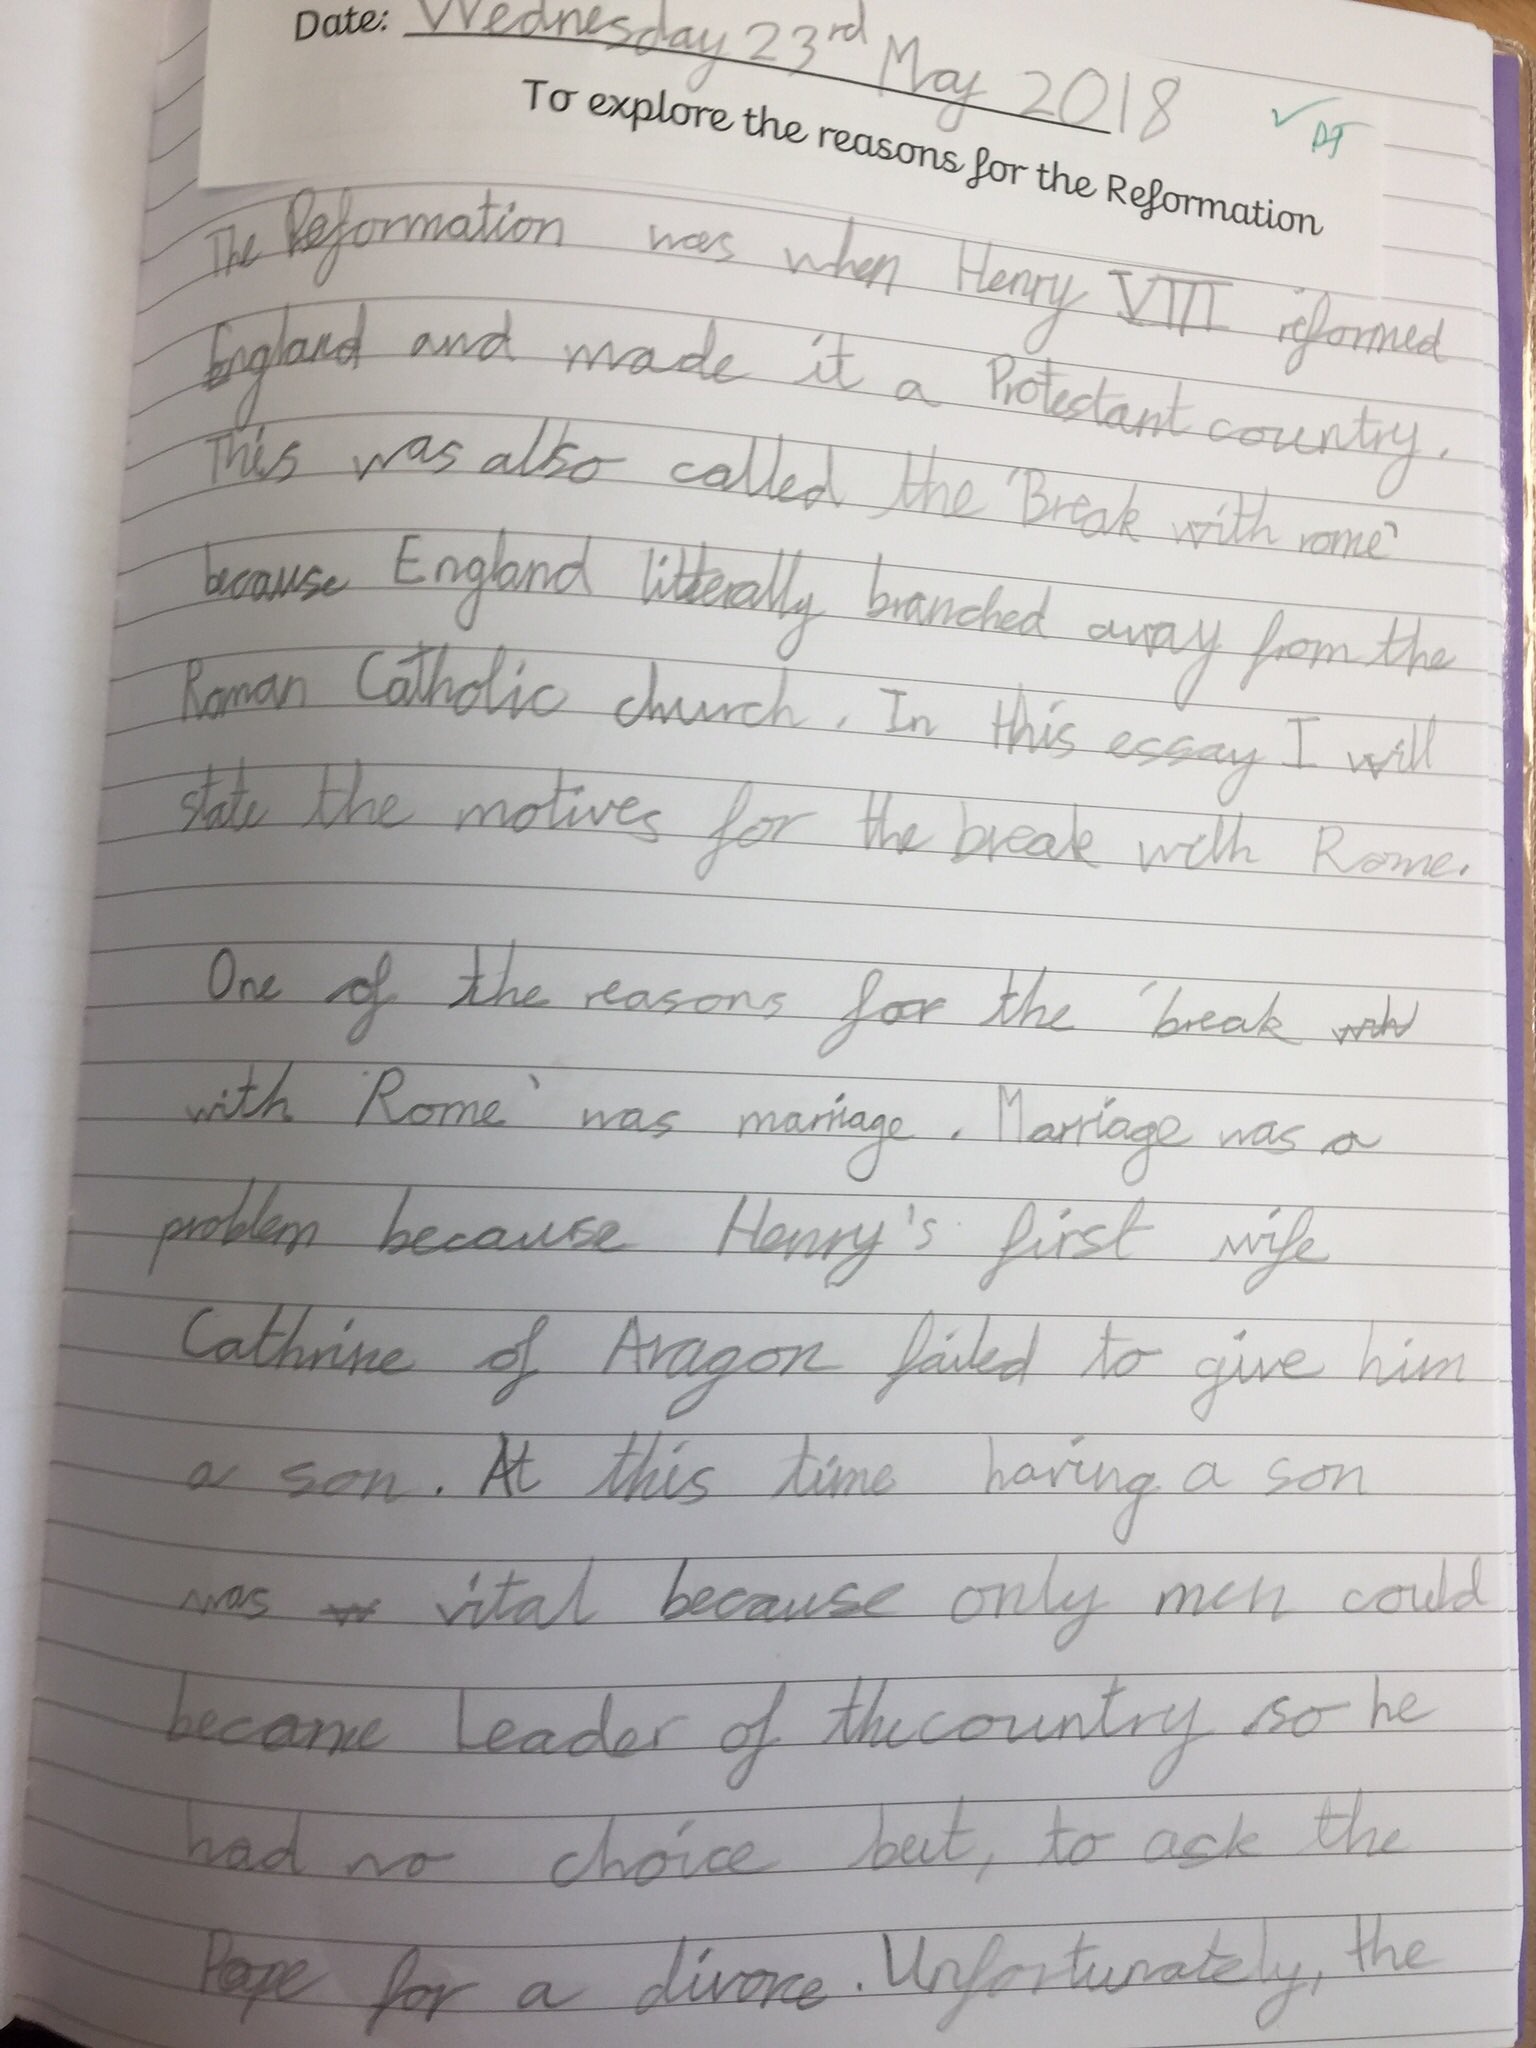 Date: Wednesday 23rd May 2018
To explore the reasons for the Reformation
The Reformation was when Henry VIII reformed
England and made it a Protestant country.
This was also called the 'Break with rome'
because England litterally branched away from the
Roman Catholic church. In this essay I will
state the motives for the break with Rome.
One of the reasons for the 'break
with Rome' was marriage. Marriage was a
problem because Henry's first wife
Cathrine of Aragon failed to give him
a son. At this time having a son
was vital because only men could
became leader of the country so he
had no choice but, to ask the
Pope for a divorce. Unfortunately, the